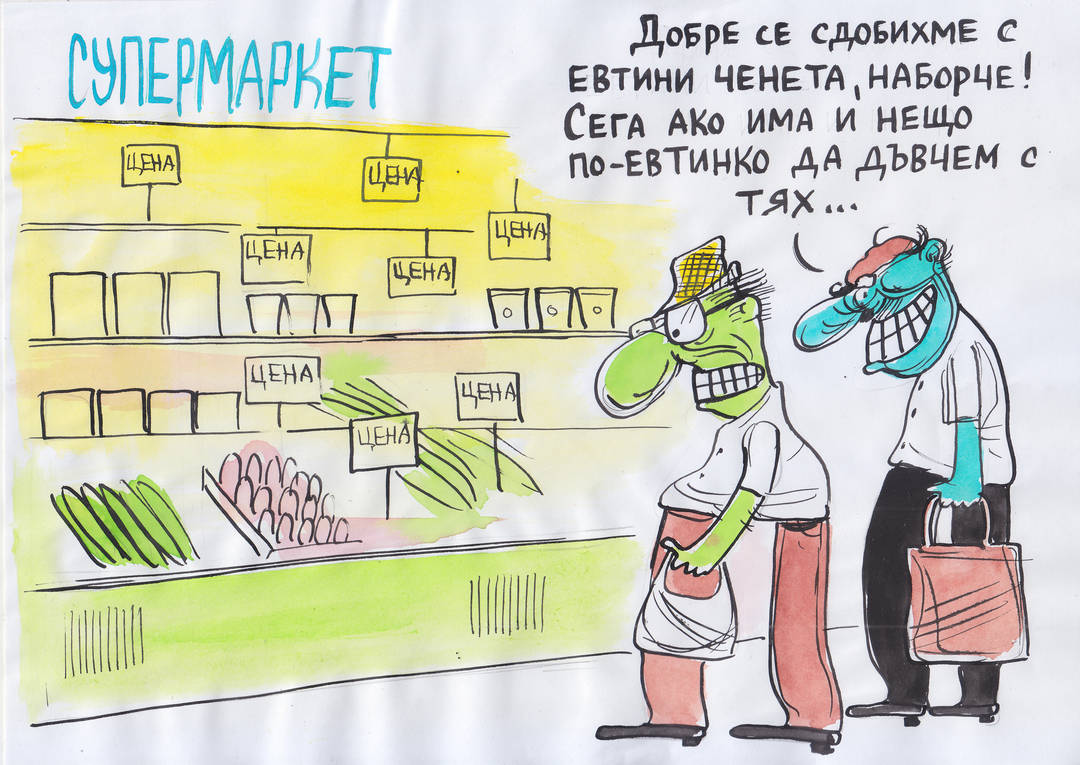 СУПЕРМАРКЕТ
ДОБРЕ СЕ СДОБИХМЕ С
ЕВТИНИ ЧЕНЕТА, НАБОРЧЕ!
СЕГА АКО ИМА И НЕЩО
ПО-ЕВТИНКО ДА ДЪВЧЕМ С
ТЯХ...
ЦЕНА
ЦЕНА
ЦЕНА
ЦЕНА
ЦЕНА
ЦЕНА
ЦЕНА
ЦЕНА